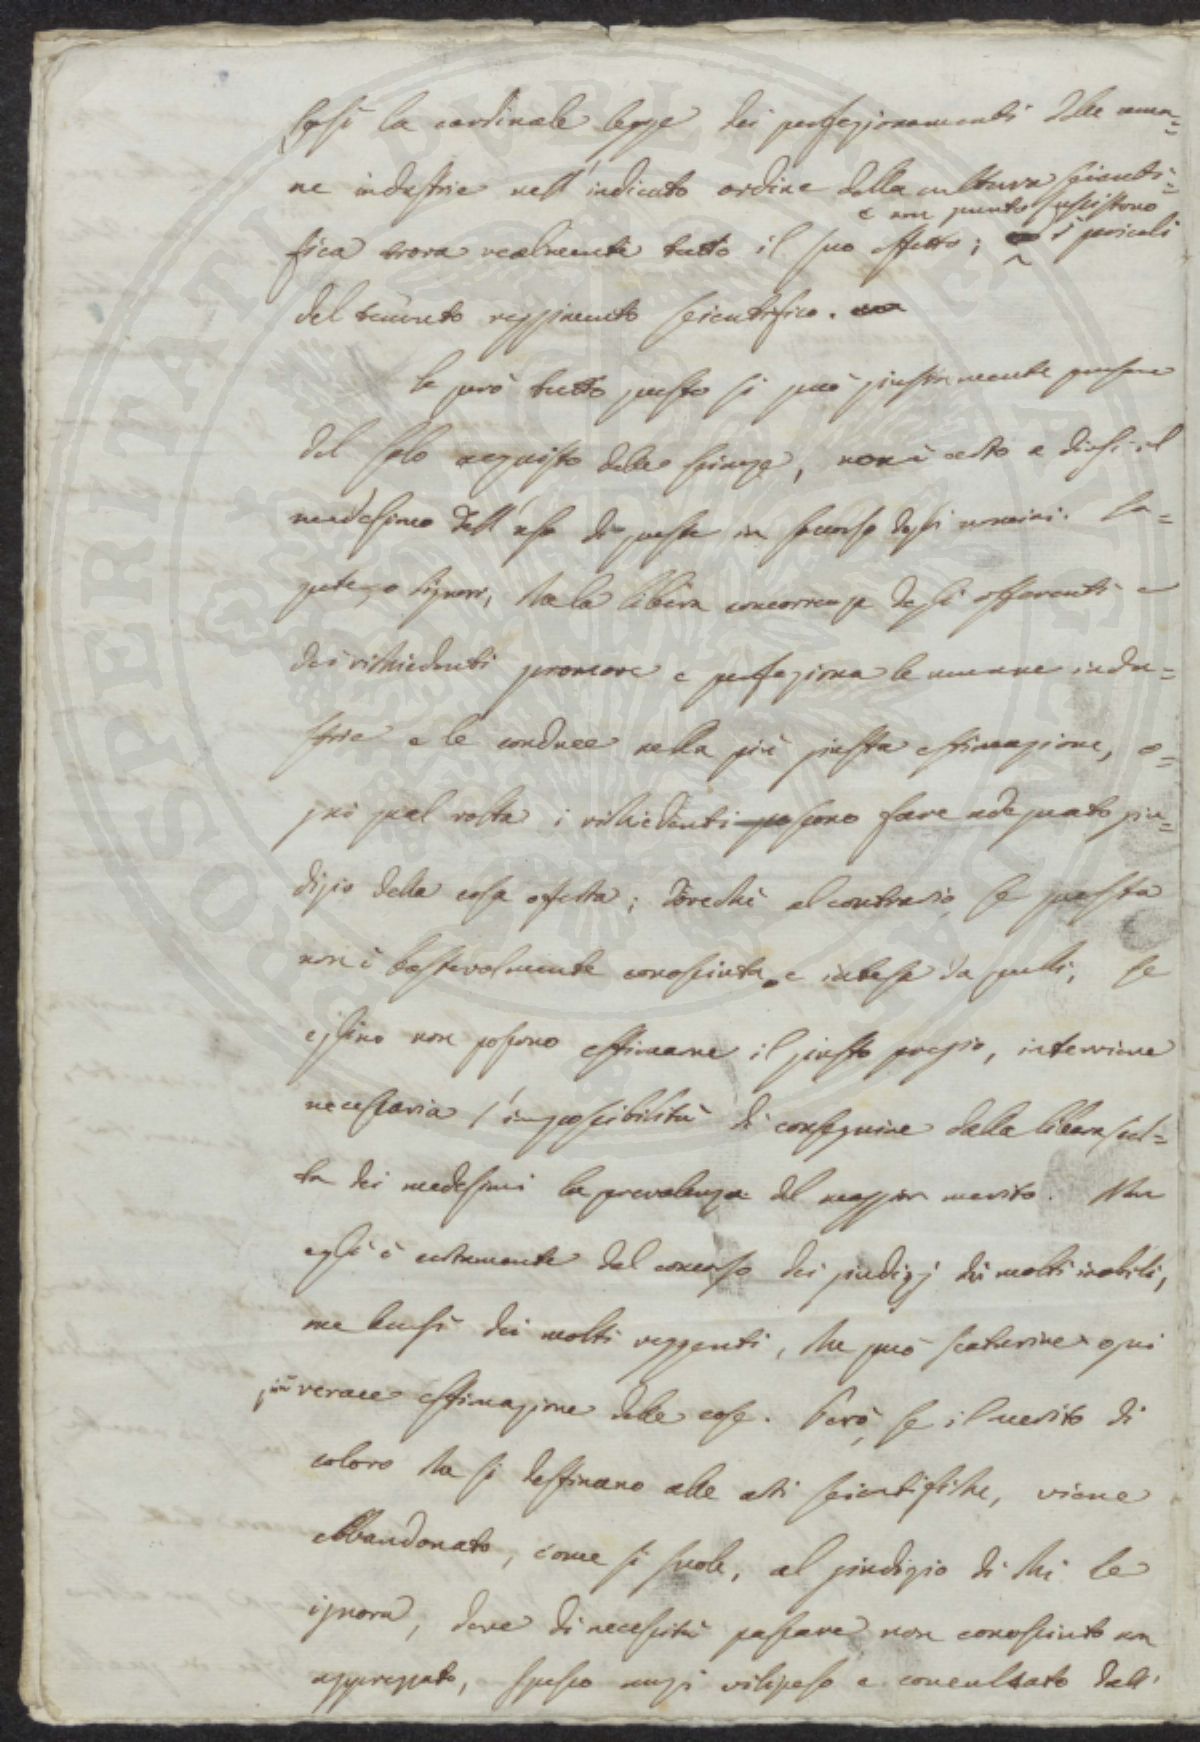 Così la cardinale legge dei perfezionamenti delle uma=
ne industrie nell'indicato ordine della cultura scienti=
e non punto sussistono
fica trova realmente tutto il suo effetto; i pericoli
del temuto reggimento scientifico.
Se però tutto questo si può giustamente
del solo acquisto delle scienze, non è certo a dirsi il
medesimo dell'uso di queste in soccorso degli uomini. Sa=
pete, o Signori, che la libera concorrenza degli offerenti e
dei richiedenti promove e perfeziona le umane indu=
strie e le conduce nella più giusta estimazione, o=
gni qual volta i richiedenti possono fare adeguato giu=
dizio della cosa offerta; dovechè al contrario, se questa
non è bastevolmente conosciuta e intesa da quelli, se
essino non possono estimarne il giusto pregio, interviene
necessaria l'impossibilità di conseguire dalla libera scel=
ta dei medesimi la prevalenza del maggior merito. Non
egli è certamente dal concorso dei giudizj dei molti inabili,
ma bensì dei molti veggenti, che può scaturire ogni
più verace estimazione delle cose. Però, se il merito di
coloro che si destinano alle arti scientifiche, viene
abbandonato, come si suole, al giudizio di chi le
ignora, deve di necessità passare non conosciuto non
apprezzato, spesso anzi vilipeso e conculcato dall'